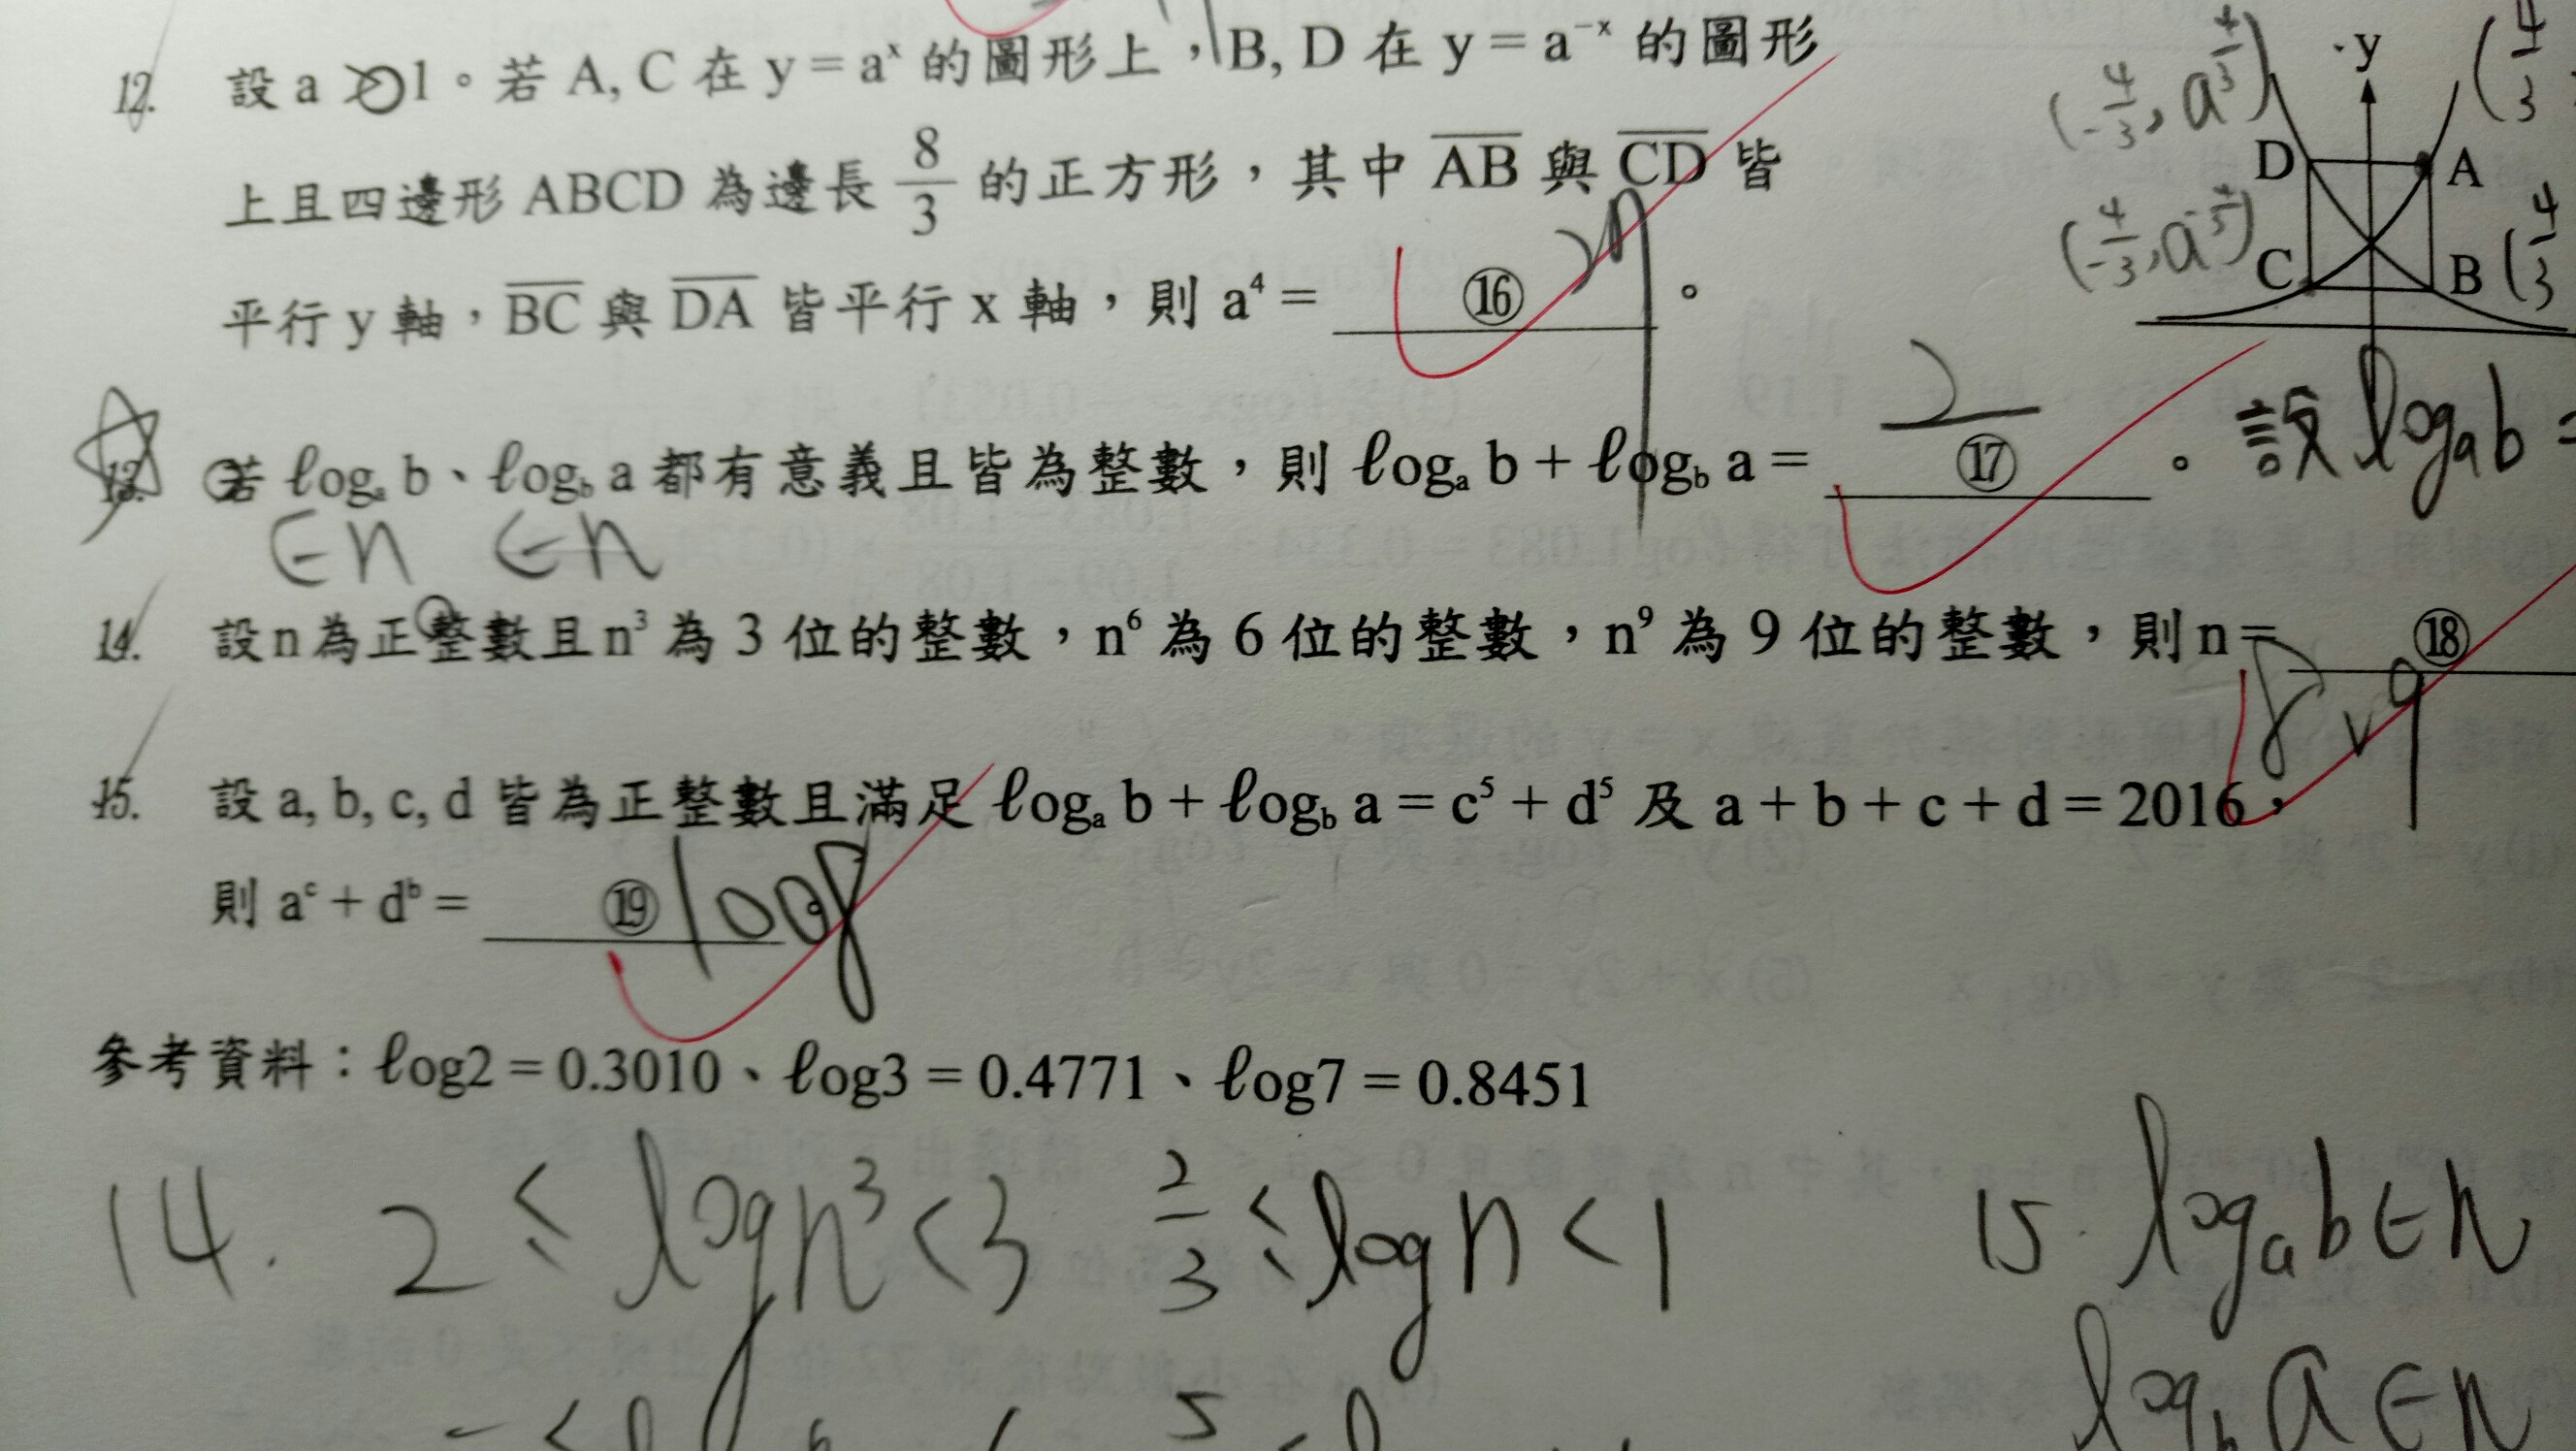 12. 設 a > 1。若 A, C 在 y = aˣ 的圖形上，B, D 在 y = a⁻ˣ 的圖形
上且四邊形 ABCD 為邊長 8/3 的正方形，其中 AB 與 CD 皆
平行 y 軸，BC 與 DA 皆平行 x 軸，則 a⁴ = ⑯ 。
(-4/3, a^(4/3))
(-4/3, a^(-4/3))
(4/3
(4/3
y
D A
C B
13. 若 ℓogₐ b、ℓog_b a 都有意義且皆為整數，則 ℓogₐ b + ℓog_b a = ⑰ 。 2
設 logₐb =
∈n ∈n
14. 設 n 為正整數且 n³ 為 3 位的整數，n⁶ 為 6 位的整數，n⁹ 為 9 位的整數，則 n = ⑱
8 v 9
15. 設 a, b, c, d 皆為正整數且滿足 ℓogₐ b + ℓog_b a = c⁵ + d⁵ 及 a + b + c + d = 2016，
則 aᶜ + dᵇ = ⑲ 1008
參考資料：ℓog2 = 0.3010、ℓog3 = 0.4771、ℓog7 = 0.8451
14. 2 ≤ log n³ < 3 2/3 ≤ log n < 1
15. logₐb ∈ n
log_b a ∈ n